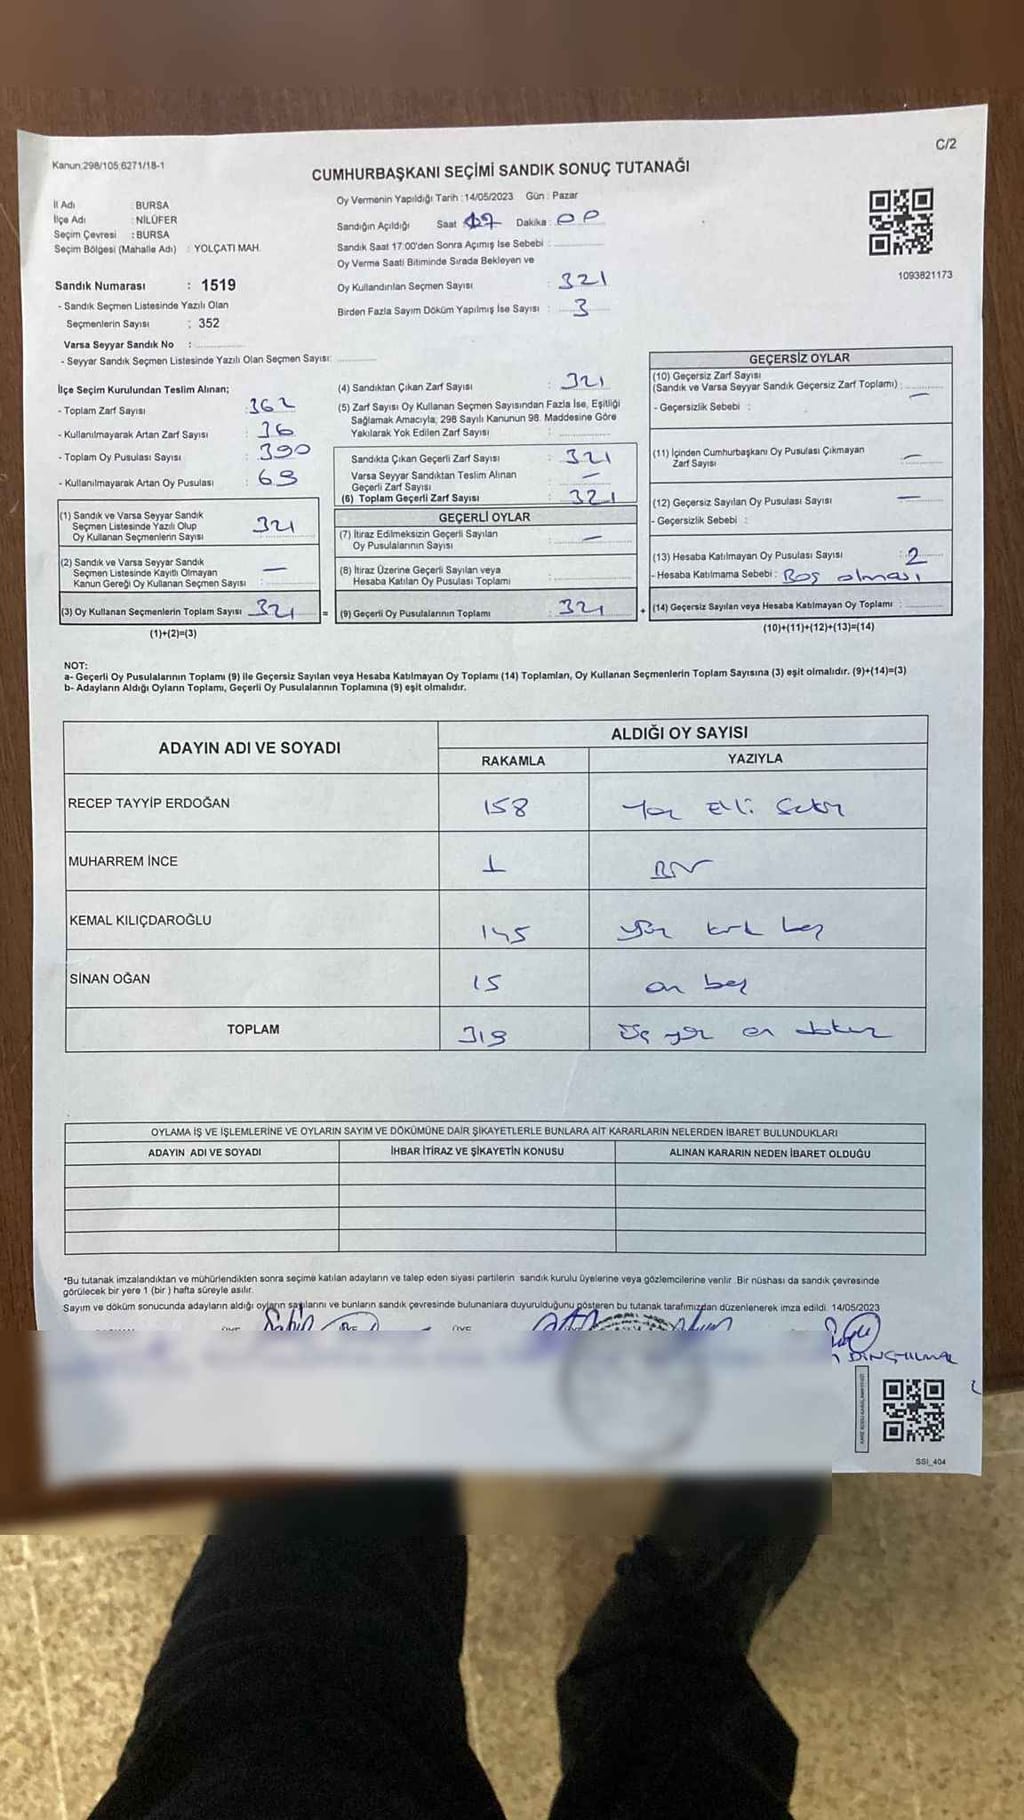 C/2
Kanun:298/105 6271/18-1
CUMHURBAŞKANI SEÇİMİ SANDIK SONUÇ TUTANAĞI
İl Adı : BURSA
İlçe Adı : NİLÜFER
Seçim Çevresi : BURSA
Seçim Bölgesi (Mahalle Adı) : YOLÇATI MAH.
Sandık Numarası : 1519
- Sandık Seçmen Listesinde Yazılı Olan
Seçmenlerin Sayısı : 352
Varsa Seyyar Sandık No :
- Seyyar Sandık Seçmen Listesinde Yazılı Olan Seçmen Sayısı:
Oy Vermenin Yapıldığı Tarih :14/05/2023 Gün : Pazar
Sandığın Açıldığı Saat 17 Dakika :
Sandık Saat 17:00'den Sonra Açımış İse Sebebi :
Oy Verme Saati Bitiminde Sırada Bekleyen ve
Oy Kullandırılan Seçmen Sayısı : 321
Birden Fazla Sayım Döküm Yapılmış İse Sayısı : 3
1093821173
İlçe Seçim Kurulundan Teslim Alınan;
- Toplam Zarf Sayısı : 362
- Kullanılmayarak Artan Zarf Sayısı : 36
- Toplam Oy Pusulası Sayısı : 390
- Kullanılmayarak Artan Oy Pusulası : 69
(1) Sandık ve Varsa Seyyar Sandık
Seçmen Listesinde Yazılı Olup
Oy Kullanan Seçmenlerin Sayısı : 321
(2) Sandık ve Varsa Seyyar Sandık
Seçmen Listesinde Kayıtlı Olmayan
Kanun Gereği Oy Kullanan Seçmen Sayısı : —
(3) Oy Kullanan Seçmenlerin Toplam Sayısı : 321 =
(1)+(2)=(3)
(4) Sandıktan Çıkan Zarf Sayısı : 321
(5) Zarf Sayısı Oy Kullanan Seçmen Sayısından Fazla İse, Eşitliği
Sağlamak Amacıyla, 298 Sayılı Kanunun 98. Maddesine Göre
Yakılarak Yok Edilen Zarf Sayısı :
Sandıkta Çıkan Geçerli Zarf Sayısı : 321
Varsa Seyyar Sandıktan Teslim Alınan
Geçerli Zarf Sayısı : —
(6) Toplam Geçerli Zarf Sayısı : 321
GEÇERLİ OYLAR
(7) İtiraz Edilmeksizin Geçerli Sayılan
Oy Pusulalarının Sayısı : —
(8) İtiraz Üzerine Geçerli Sayılan veya
Hesaba Katılan Oy Pusulası Toplamı :
(9) Geçerli Oy Pusulalarının Toplamı : 321 +
GEÇERSİZ OYLAR
(10) Geçersiz Zarf Sayısı
(Sandık ve Varsa Seyyar Sandık Geçersiz Zarf Toplamı) : —
- Geçersizlik Sebebi :
(11) İçinden Cumhurbaşkanı Oy Pusulası Çıkmayan
Zarf Sayısı : —
(12) Geçersiz Sayılan Oy Pusulası Sayısı : —
- Geçersizlik Sebebi :
(13) Hesaba Katılmayan Oy Pusulası Sayısı : 2
- Hesaba Katılmama Sebebi : Boş olması
(14) Geçersiz Sayılan veya Hesaba Katılmayan Oy Toplamı :
(10)+(11)+(12)+(13)=(14)
NOT:
a- Geçerli Oy Pusulalarının Toplamı (9) ile Geçersiz Sayılan veya Hesaba Katılmayan Oy Toplamı (14) Toplamları, Oy Kullanan Seçmenlerin Toplam Sayısına (3) eşit olmalıdır. (9)+(14)=(3)
b- Adayların Aldığı Oyların Toplamı, Geçerli Oy Pusulalarının Toplamına (9) eşit olmalıdır.
ADAYIN ADI VE SOYADI
ALDIĞI OY SAYISI
RAKAMLA YAZIYLA
RECEP TAYYİP ERDOĞAN 158 Yüz Elli Sekiz
MUHARREM İNCE 1 Bir
KEMAL KILIÇDAROĞLU 145 yüz kırk beş
SİNAN OĞAN 15 on beş
TOPLAM 319 Üç yüz on dokuz
OYLAMA İŞ VE İŞLEMLERİNE VE OYLARIN SAYIM VE DÖKÜMÜNE DAİR ŞİKAYETLERLE BUNLARA AİT KARARLARIN NELERDEN İBARET BULUNDUKLARI
ADAYIN ADI VE SOYADI İHBAR İTİRAZ VE ŞİKAYETİN KONUSU ALINAN KARARIN NEDEN İBARET OLDUĞU
*Bu tutanak imzalandıktan ve mühürlendikten sonra seçime katılan adayların ve talep eden siyasi partilerin sandık kurulu üyelerine veya gözlemcilerine verilir. Bir nüshası da sandık çevresinde
görülecek bir yere 1 (bir ) hafta süreyle asılır.
Sayım ve döküm sonucunda adayların aldığı oyların sayılarını ve bunların sandık çevresinde bulunanlara duyurulduğunu gösteren bu tutanak tarafımızdan düzenlenerek imza edildi. 14/05/2023
SSI_404